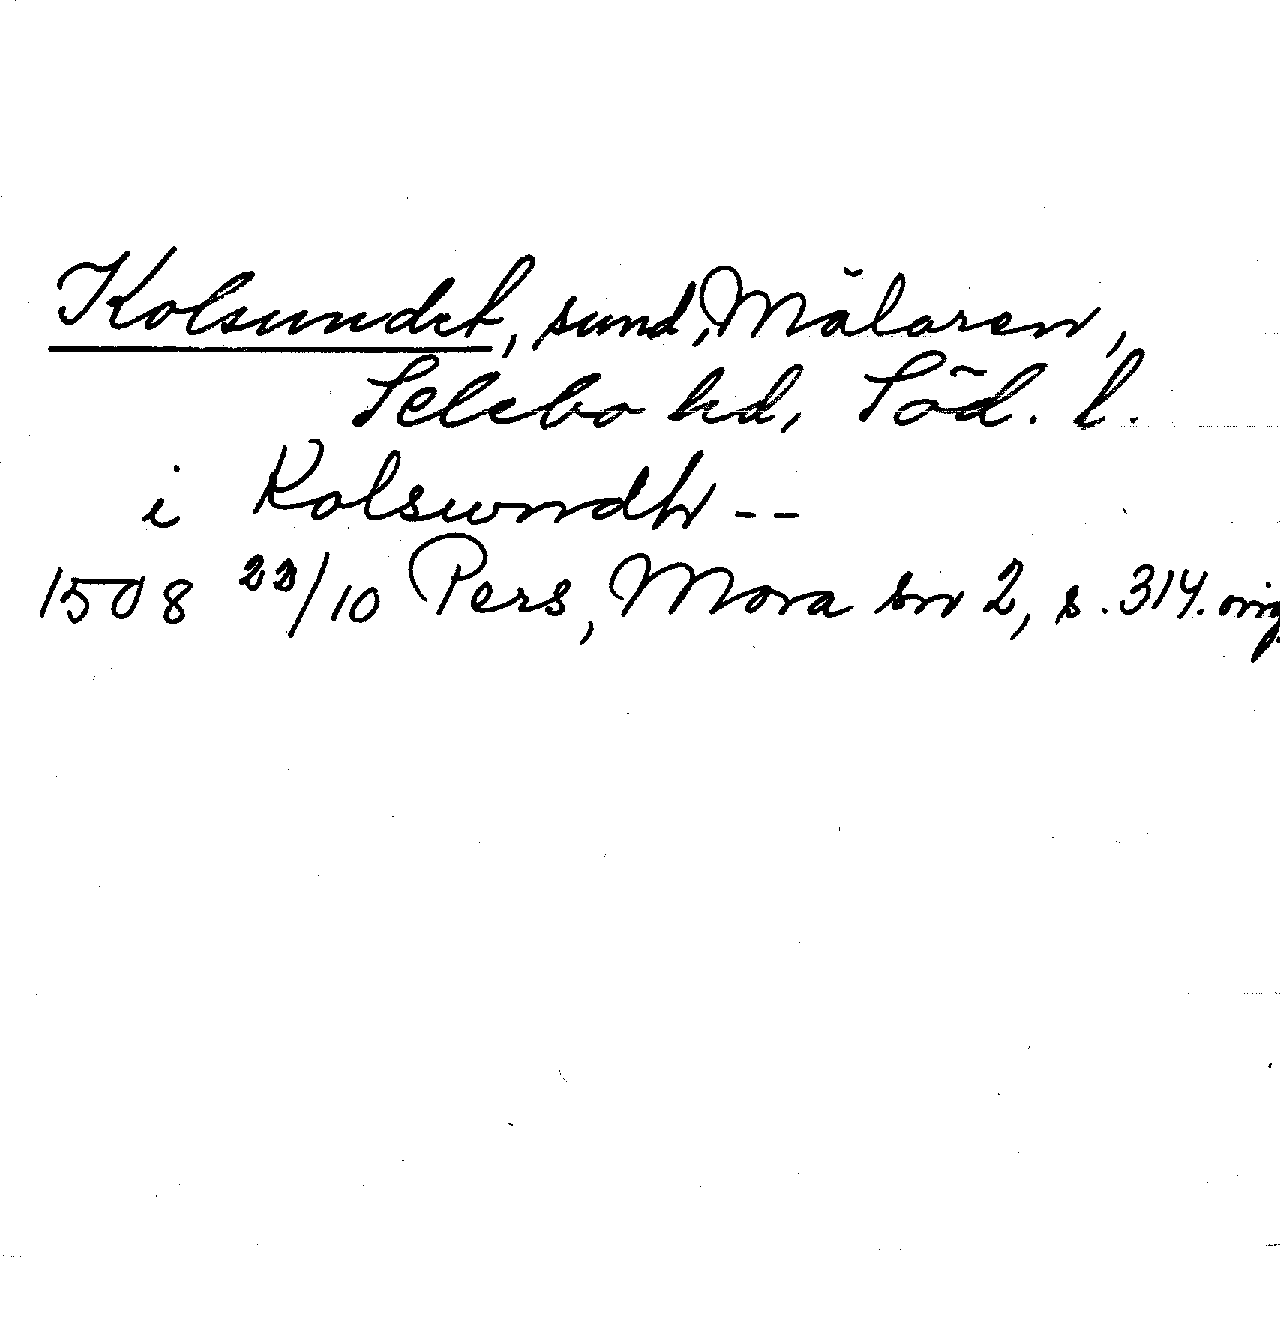 Kolsundet, sund, Mälaren,
Selebo hd, Söd. l.
i Kolswndh --
1508 22/10 Pers, Mora sn 2, s. 314. orig.